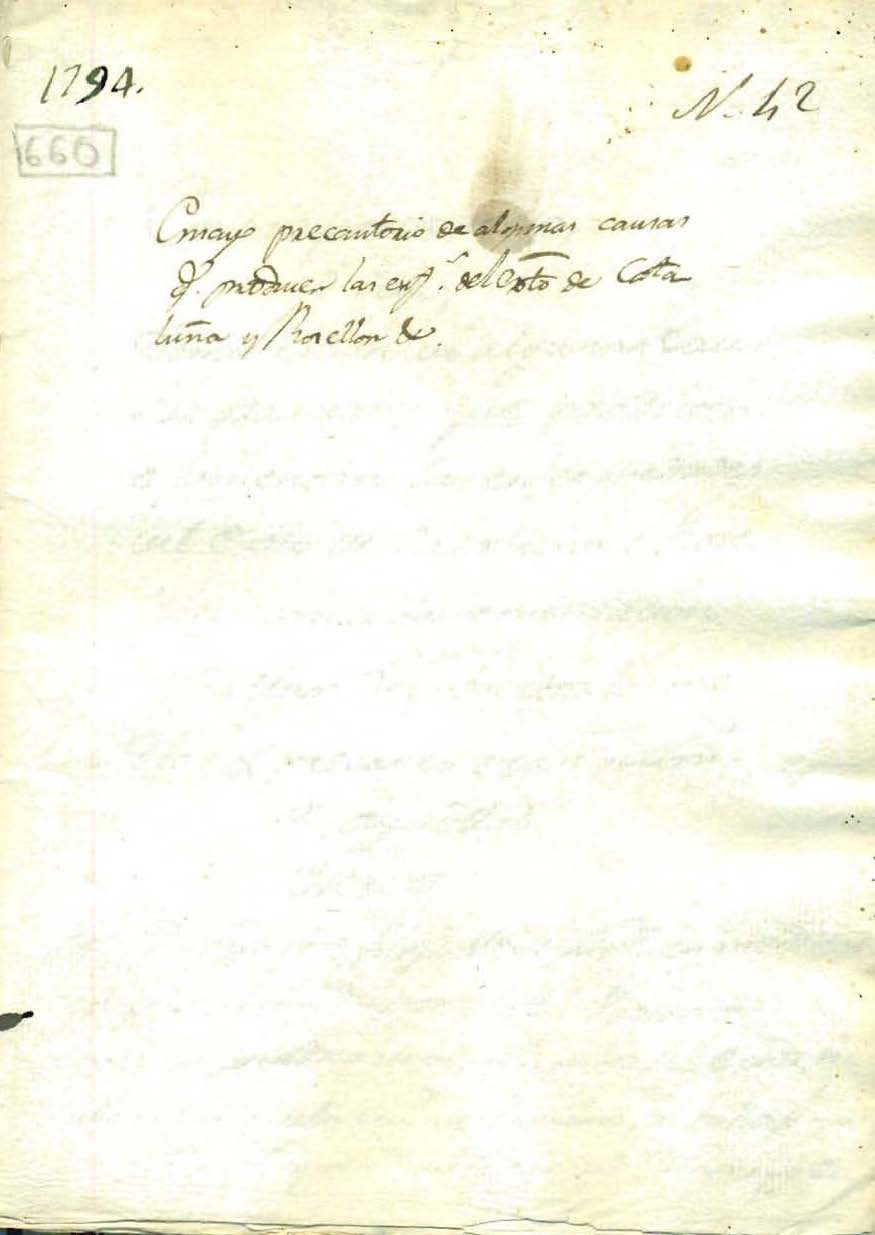 1794.
N. 42
660
Ensayo precautorio de algunas causas
q.e producen las enf.s del Exto de Cata
luña y Rosellon &.